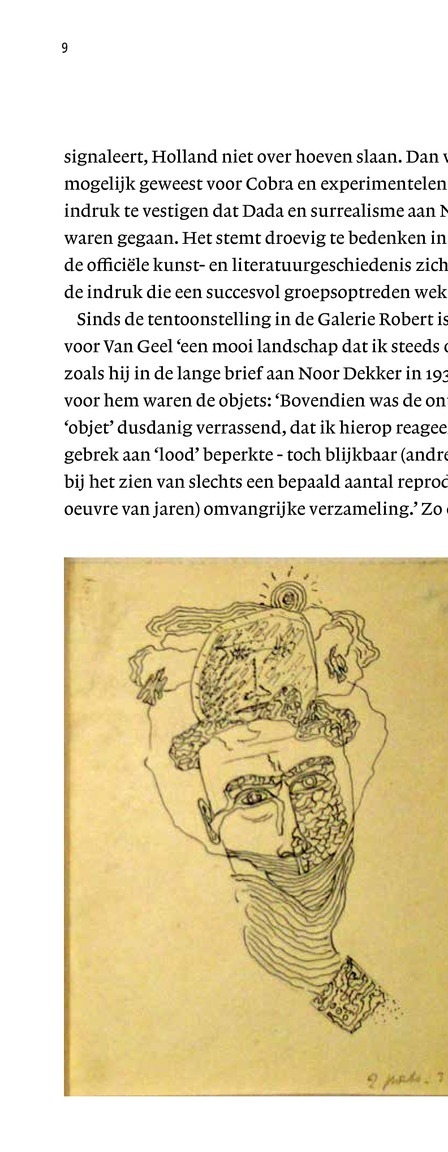 9
signaleert, Holland niet over hoeven slaan. Dan
mogelijk geweest voor Cobra en experimentelen
indruk te vestigen dat Dada en surrealisme aan
waren gegaan. Het stemt droevig te bedenken in
de officiële kunst- en literatuurgeschiedenis zich
de indruk die een succesvol groepsoptreden wek
Sinds de tentoonstelling in de Galerie Robert is
voor Van Geel ‘een mooi landschap dat ik steeds
zoals hij in de lange brief aan Noor Dekker in 193
voor hem waren de objets: ‘Bovendien was de
‘objet’ dusdanig verrassend, dat ik hierop reagee
gebrek aan ‘lood’ beperkte - toch blijkbaar (andre
bij het zien van slechts een bepaald aantal reprod
oeuvre van jaren) omvangrijke verzameling.’ Zo